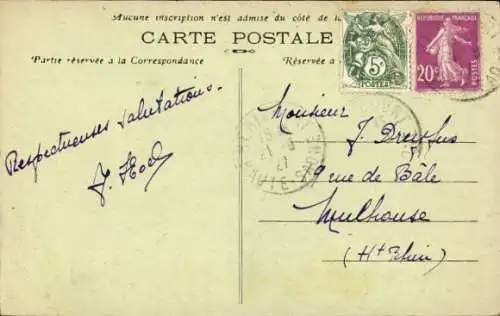 Aucune inscription n'est admise du côté de l
CARTE POSTALE
Partie réservée à la Correspondance
Réservée a
5c
POSTES
RÉPUBLIQUE FRANÇAISE
20c
POSTES
Respectueuses salutations.
Monsieur
J. Dreyfus
9 rue de Bâle
Mulhouse
(Ht Rhin)